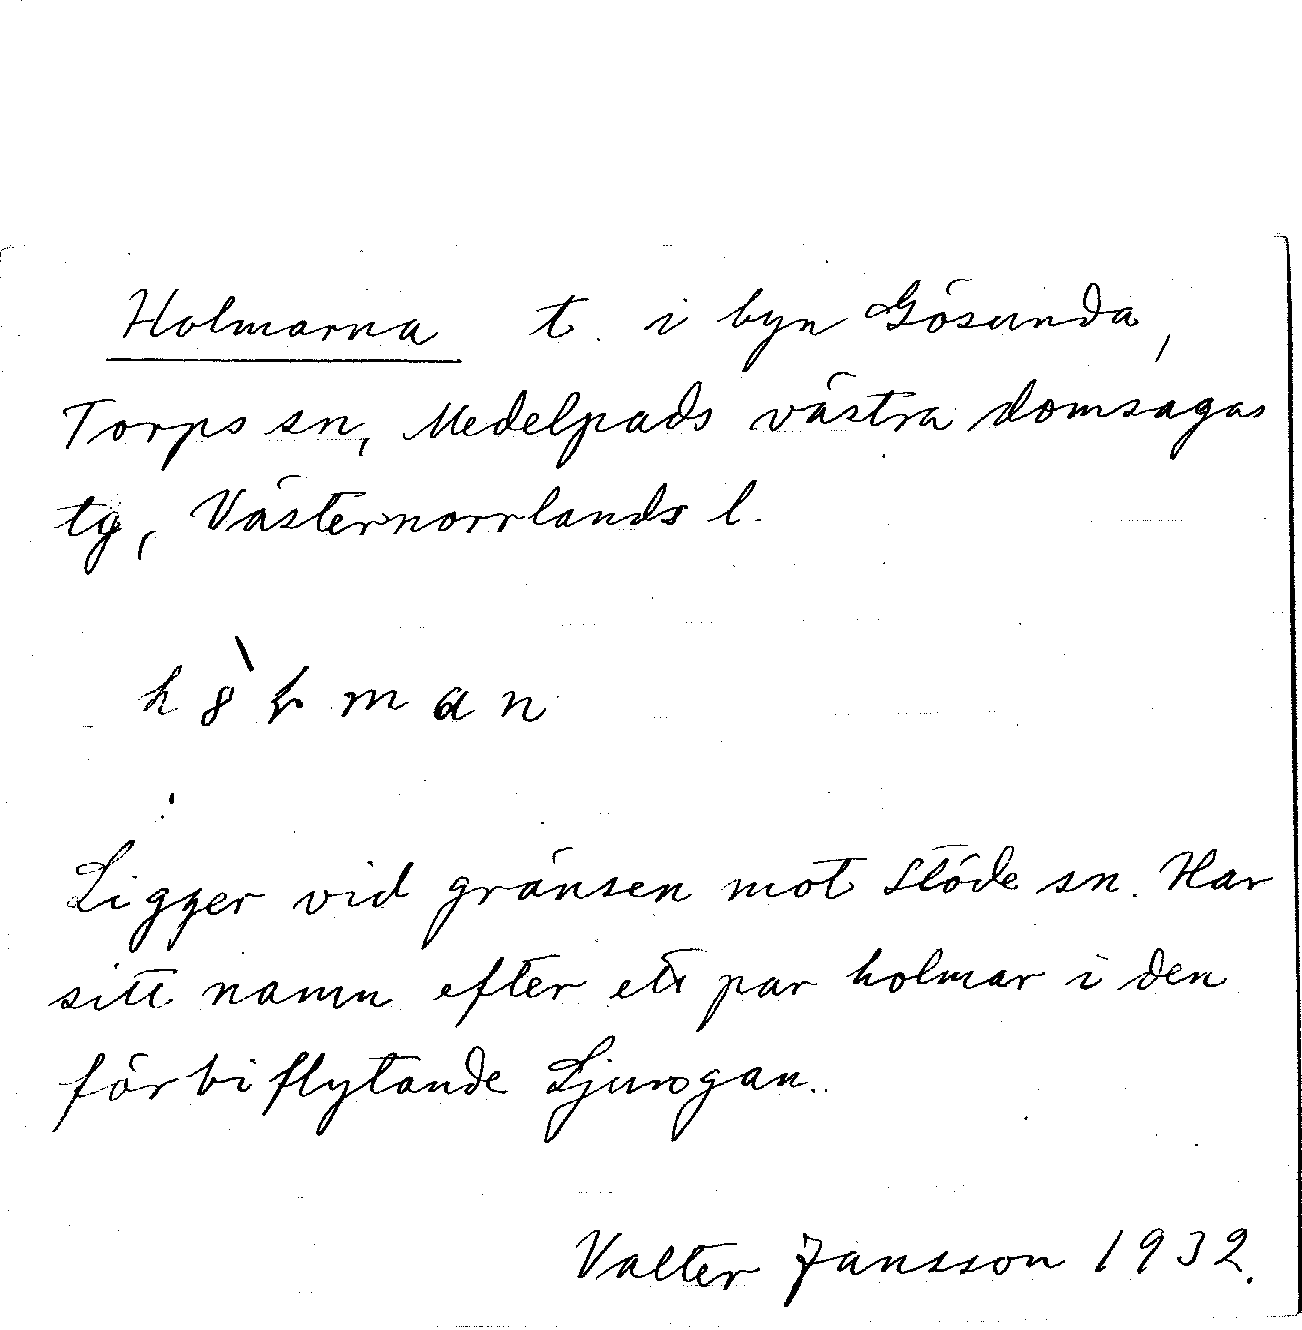 Holmarna t. i byn Gösunda,
Torps sn, Medelpads västra domsagas
tg, Västernorrlands l.
Ligger vid gränsen mot Stöde sn. Har
sitt namn efter ett par holmar i den
förbiflytande Ljungan.
Valter Jansson 1932.